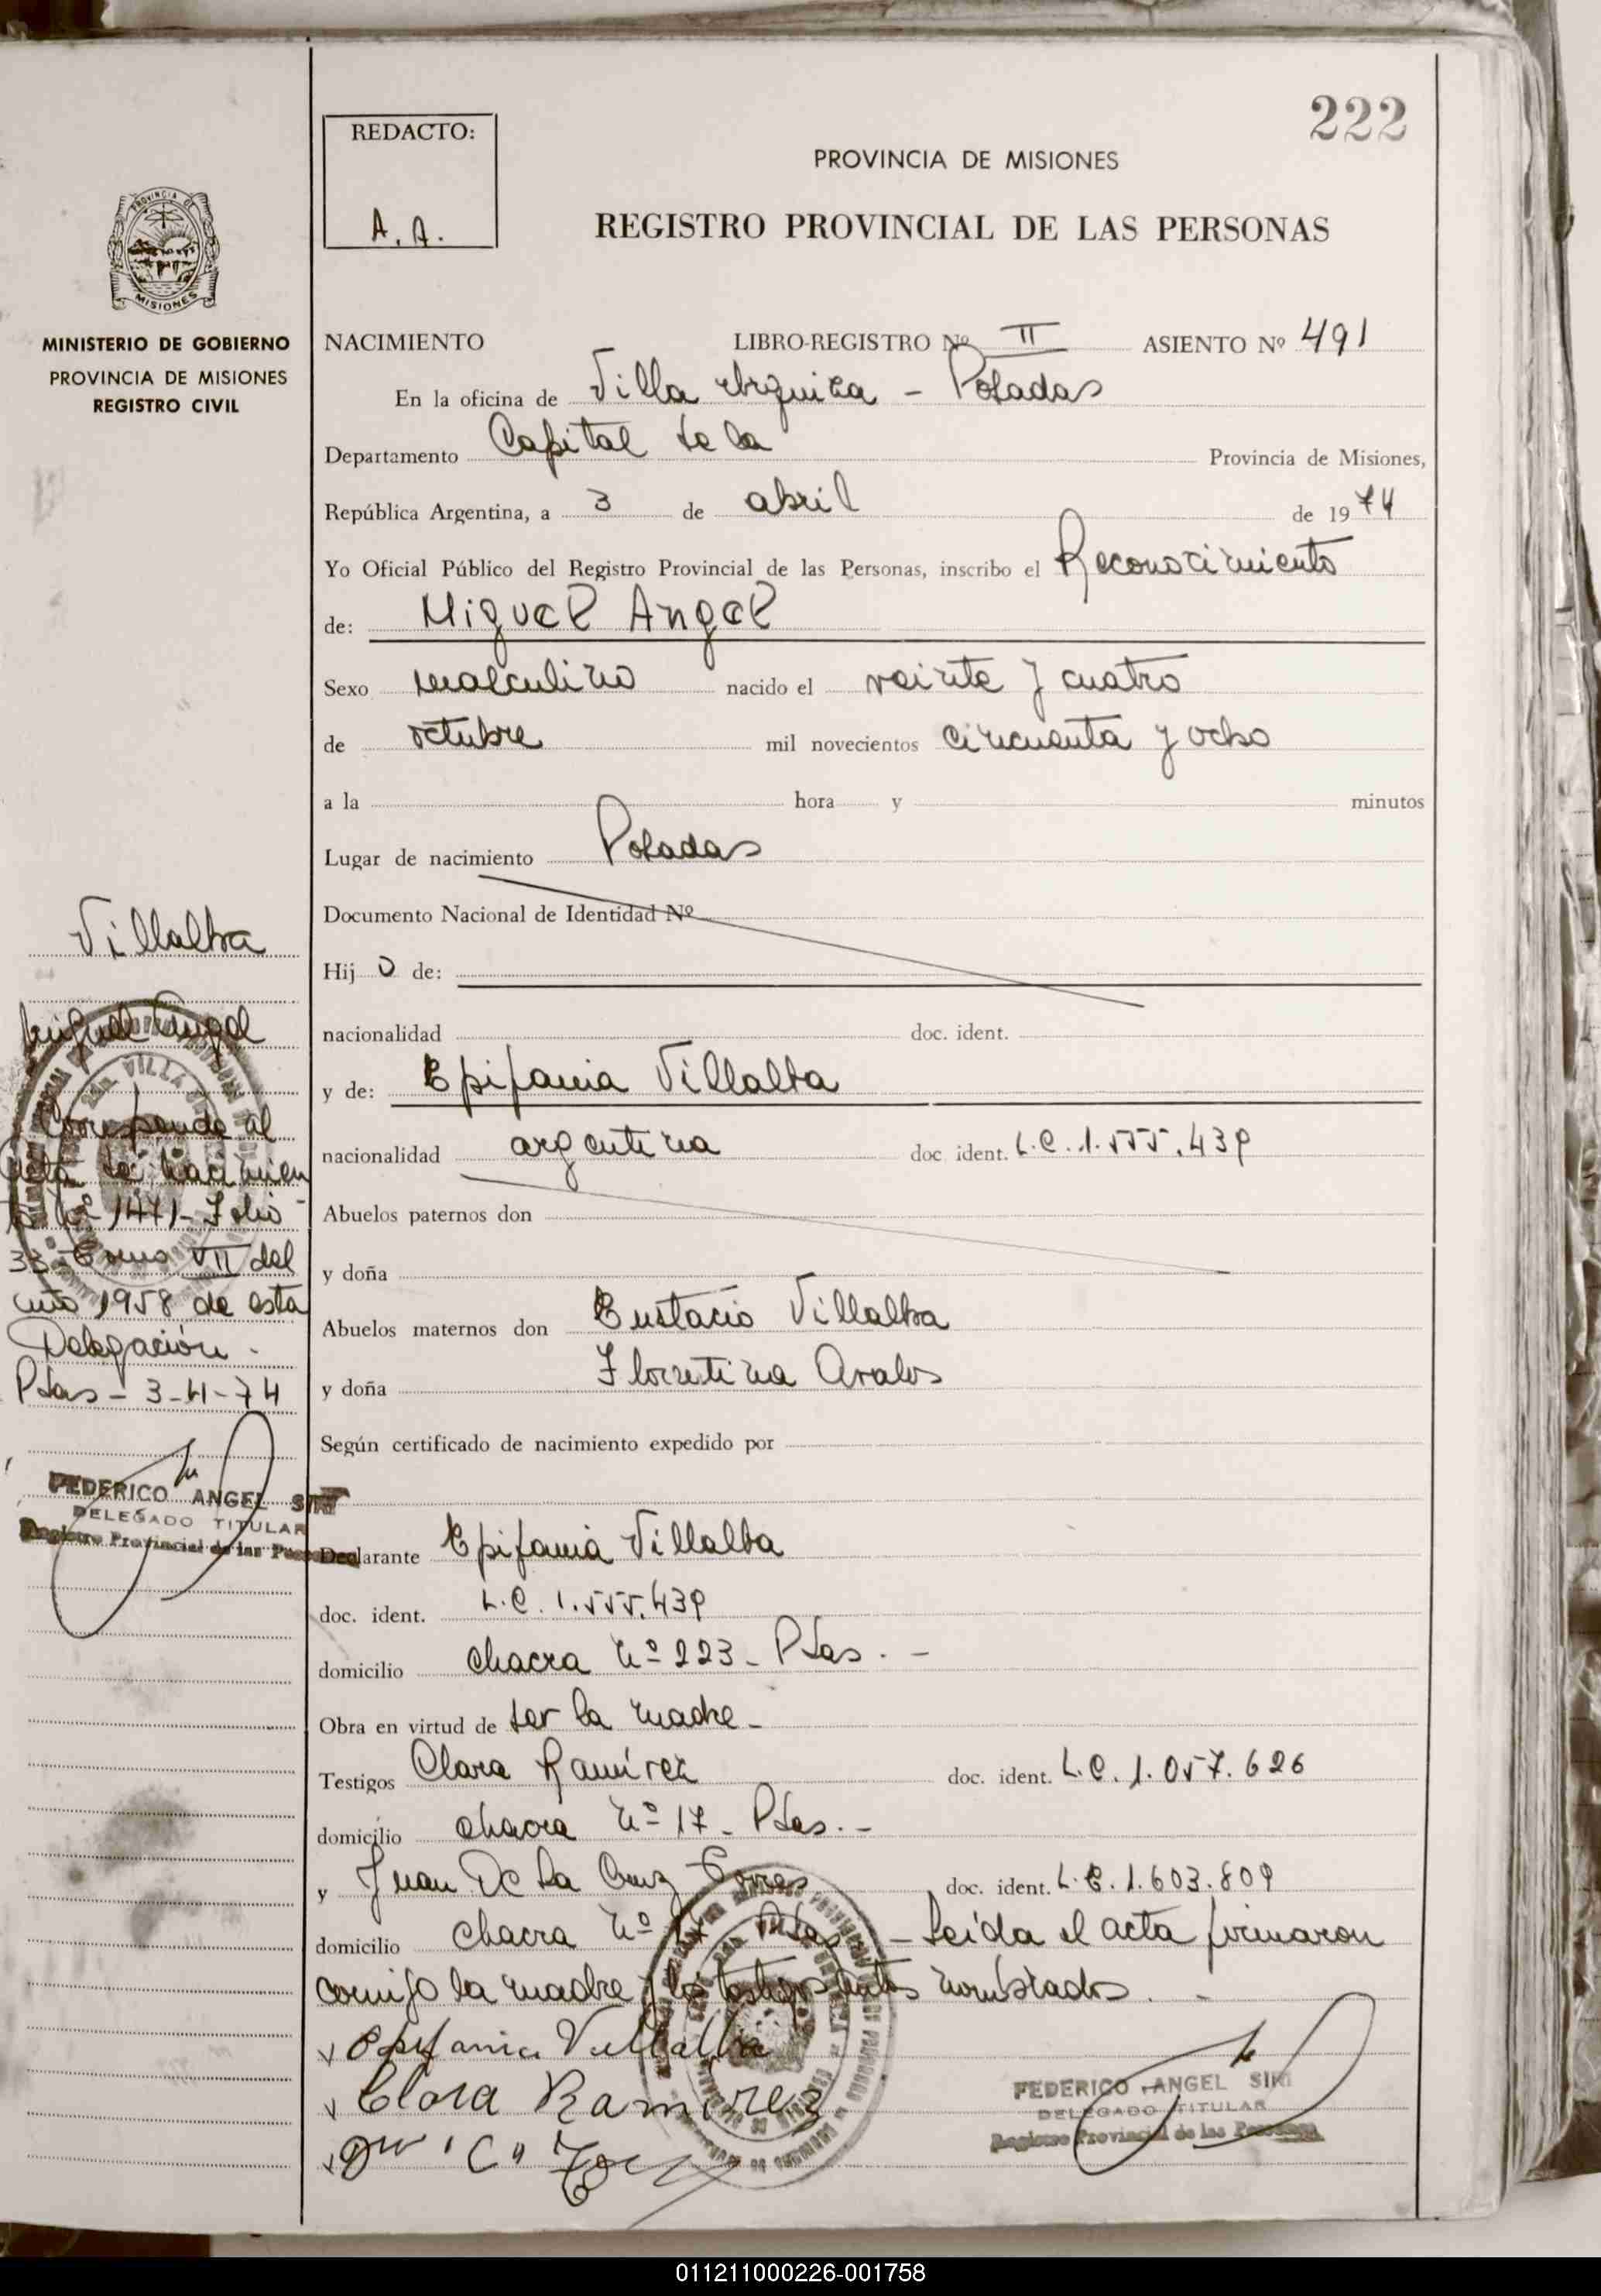 222
REDACTO:
A. A.
PROVINCIA DE MISIONES
REGISTRO PROVINCIAL DE LAS PERSONAS
PROVINCIA DE
MISIONES
MINISTERIO DE GOBIERNO
PROVINCIA DE MISIONES
REGISTRO CIVIL
NACIMIENTO LIBRO-REGISTRO Nº II ASIENTO Nº 491
En la oficina de Villa Urquiza - Posadas
Departamento Capital de la Provincia de Misiones,
República Argentina, a 3 de abril de 1974
Yo Oficial Público del Registro Provincial de las Personas, inscribo el Reconocimiento
de: Miguel Angel
Sexo masculino nacido el veinte y cuatro
de octubre mil novecientos cincuenta y ocho
a la hora y minutos
Lugar de nacimiento Posadas
Documento Nacional de Identidad Nº
Hij o de:
nacionalidad doc. ident.
y de: Epifania Villalba
nacionalidad argentina doc ident. L.C. 1.555.439
Abuelos paternos don
y doña
Abuelos maternos don Eustacio Villalba
y doña Florentina Avalos
Según certificado de nacimiento expedido por
Declarante Epifania Villalba
doc. ident. L.C. 1.555.439
domicilio chacra nº 223 - Pdas. -
Obra en virtud de ser la madre -
Testigos Clara Ramírez doc. ident. L.C. 1.057.626
domicilio chacra nº 17 - Pdas. -
y Juan De La Cruz Torres doc. ident. L.E. 1.603.809
domicilio chacra nº 17 Pdas - Leida el acta firmaron
comigo la madre y los testigos antes nombrados. -
Epifania Villalba
Clara Ramirez
FEDERICO ANGEL SIRI
DELEGADO TITULAR
Registro Provincial de las Personas
Villalba
Miguel Angel
Corresponde al
acta de nacimien
to nº 1471 - Folio
33 - Tomo VII del
año 1958 de esta
Delegación -
Pdas - 3-4-74
FEDERICO ANGEL SIRI
DELEGADO TITULAR
Registro Provincial de las Personas
011211000226-001758